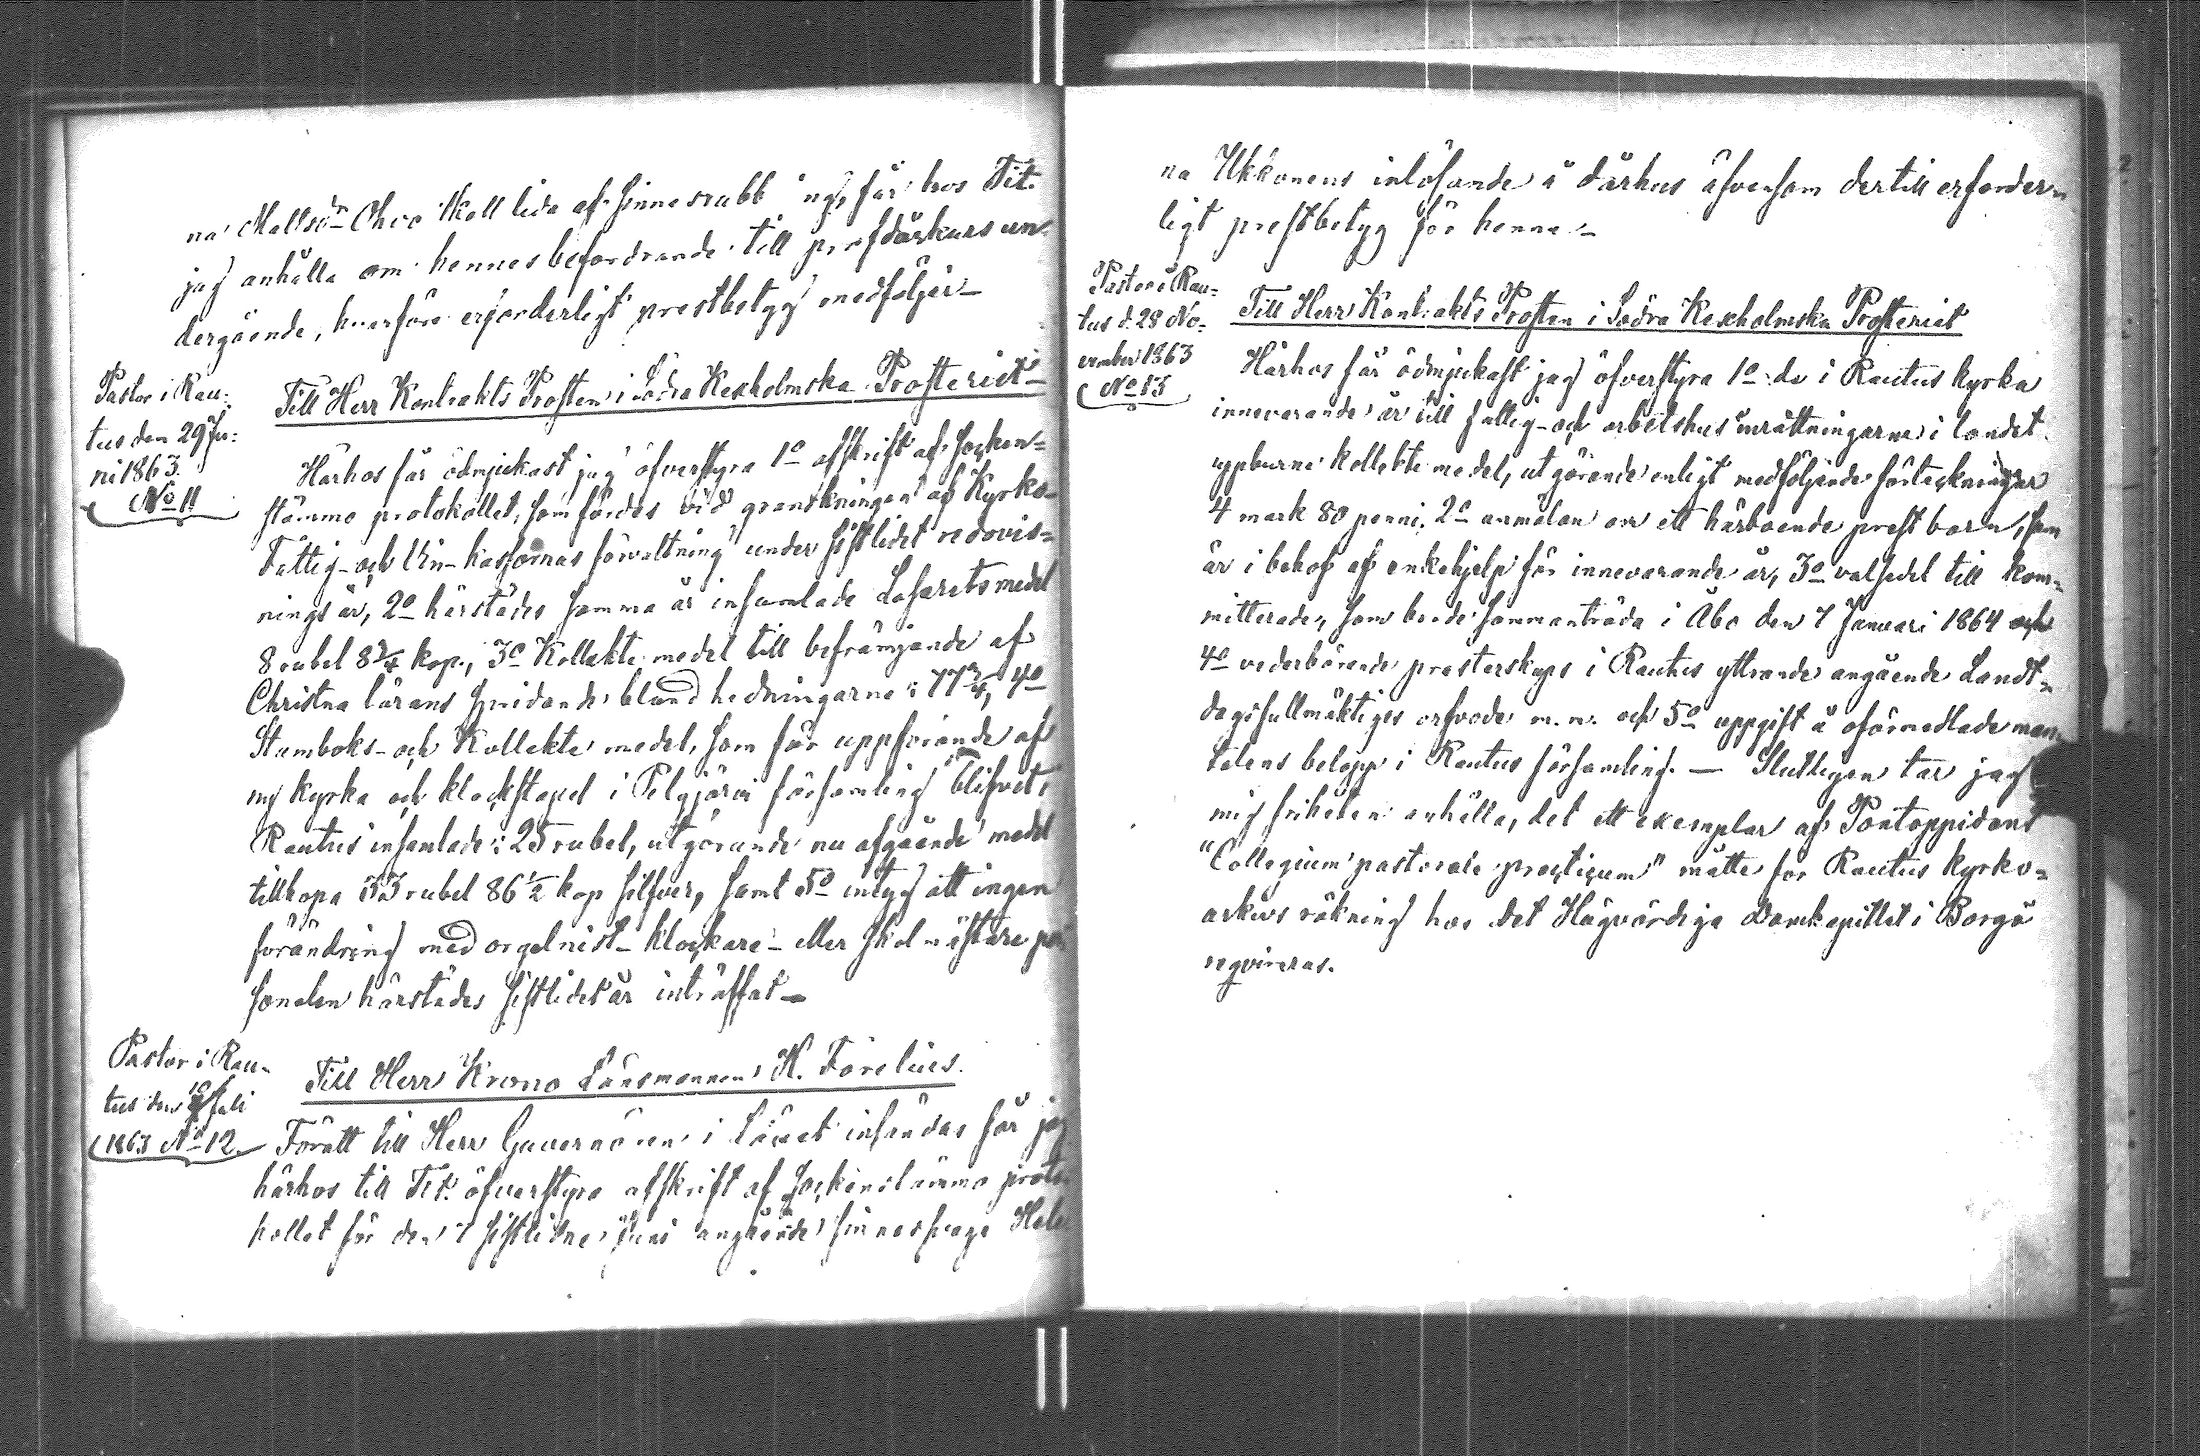 na Mattsdr Ohvo skall lida af sinnesrubbning, får hos Tit.
jag anhålla om hennes befordrande till profdårkurs un-
dergående, hvarföre erforderligt prestbetyg medföljer.
Pastor i Rau-
tus den 29 Ju-
ni 1863.
No 11
Till Herr Kontrakts Prosten i Södra Kexholmska Prosteriet
Härhos får ödmjukast jag öfverstyra 1o afskrift af Socken-
stämmo protokollet, som fördes vid granskningen af Kyrko-
Fattig- och Vin-kassornas förvaltning under sistlidet redovis-
nings år, 2o härstädes samma år insamlade Lasaretsmedel
8 rubel 8 3/4 kop., 3o Kollekte medel till befrämjande af
Christna lärans spridande bland hedningarne: 77 3/4, 4o
Stamboks- och Kollekte medel, som för uppförande af
ny kyrka och klockstapel i Pelgjärvi församling blifvit i
Rautus insamlade: 25 rubel, utgörande nu afgående medel
tillhopa 33 rubel 86 1/2 kop silfver, samt 5o intyg att ingen
förändring med orgelnist- klockare- eller skolmästare per
sonalen härstädes sistlidet år inträffat
Pastor i Rau-
tus den 10 Juli
1863 No 12.
Till Herr Krono Länsmannen K. Forelius.
Föratt till Herr Guvernören i Länet insändas får jag
härhos till Tit. öfverstyra afskrift af Sockenstämmo proto-
kollet för den 7 sistlidne Juni angående sinnessvaga Hele
na Ukkonens inlösande å dårhus äfvensom dertill erforder-
ligt prestbetyg för henne.
Pastor i Rau-
tus d. 28 No-
vember 1863
No 13
Till Herr Kontrakts Prosten i Södra Kexholmska Prosteriet
Härhos får ödmjukast jag öfverstyra 1o de i Rautus kyrka
innevarande år till fattig- och arbetshus inrättningarne i landet
uppburne kollekte medel, utgörande enligt medföljande förteckningar
4 mark 80 penni, 2o anmälan om ett härboende prest barn, som
är i behof af enkehjelp för innevarande år, 3o valsedel till Kom-
mitterade, som borde sammanträda i Åbo den 7 Januari 1864 och
4o vederbörande presterskaps i Rautus yttrande angående Landt-
dagsfullmäktiges arfvode m.m. och 5o uppgift å oförmedlade man-
talens belopp i Rautus församling. — Slutligen tar jag
mig friheten anhålla, det ett exemplar af Pontoppidans
"Collegium pastorale practicum" måtte för Rautus kyrko-
arkivs räkning hos det Högvördiga Domkapitlet i Borgå
reqvireras.